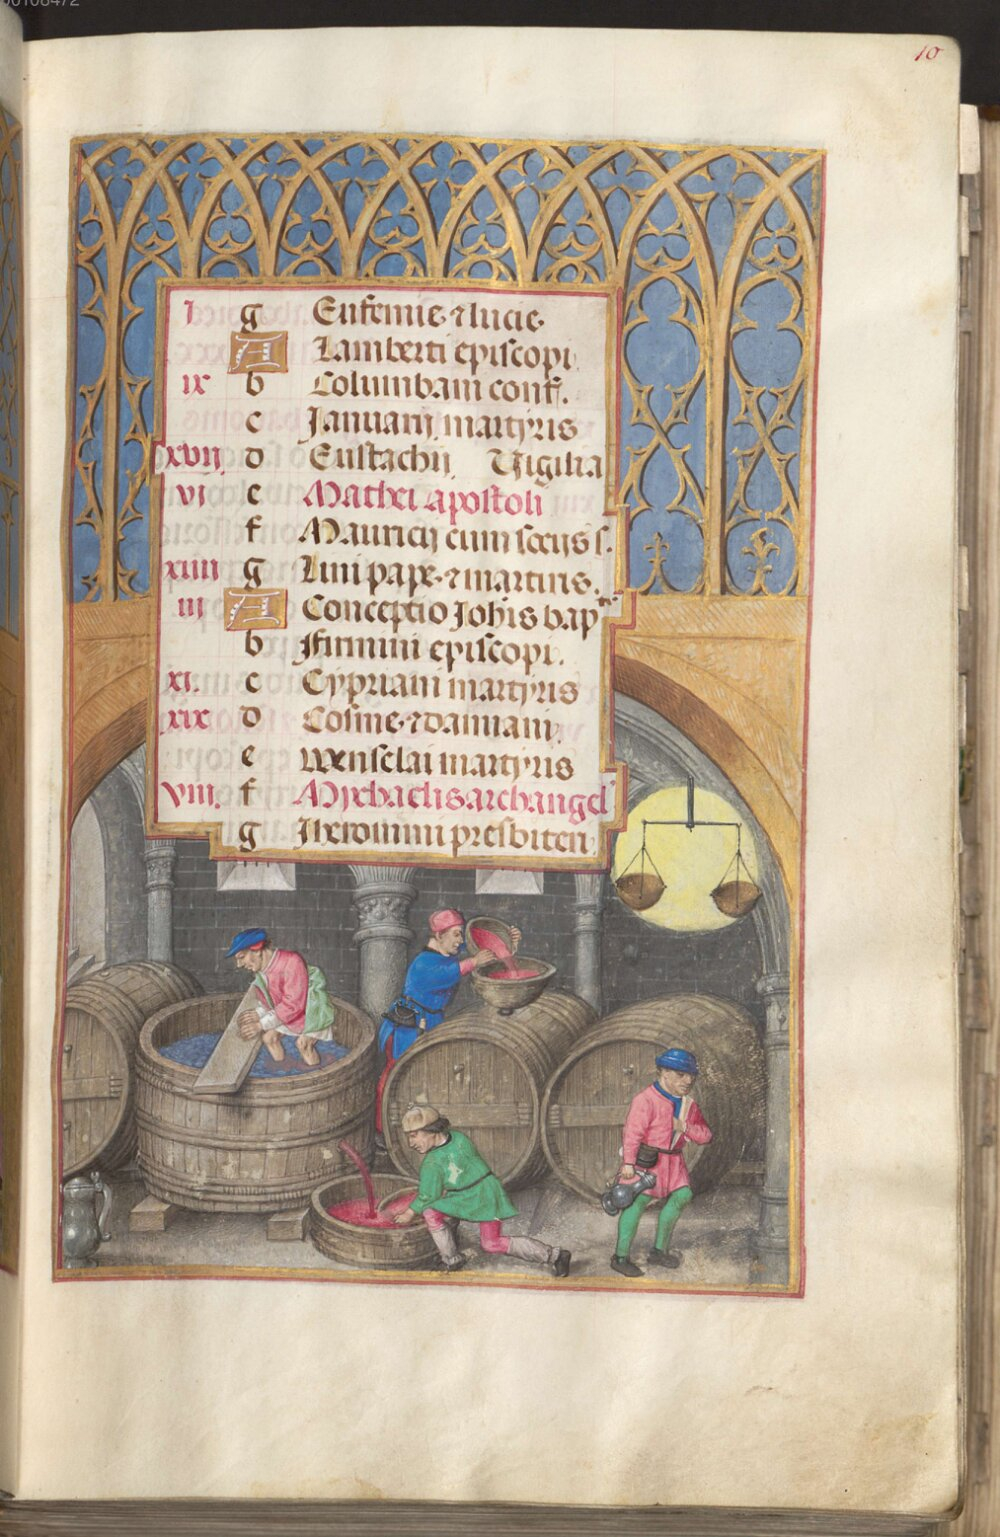 10
I g Eufemie ⁊ lucie.
A Lamberti episcopi
ix b Columbani conf.
c Januarij martyris
xvij d Eustachij Vigilia
vi e Mathei apostoli
f Mauricij cum socijs s.
xiiii g Lini pape ⁊ martiris.
iii A Conceptio Johis bapte
b Firmini episcopi.
xi. c Cypriani martyris
xix d Cosme ⁊ damiani.
e Wenselai martyris
viii. f Michaelis archangel
g Iheronimi presbiteri